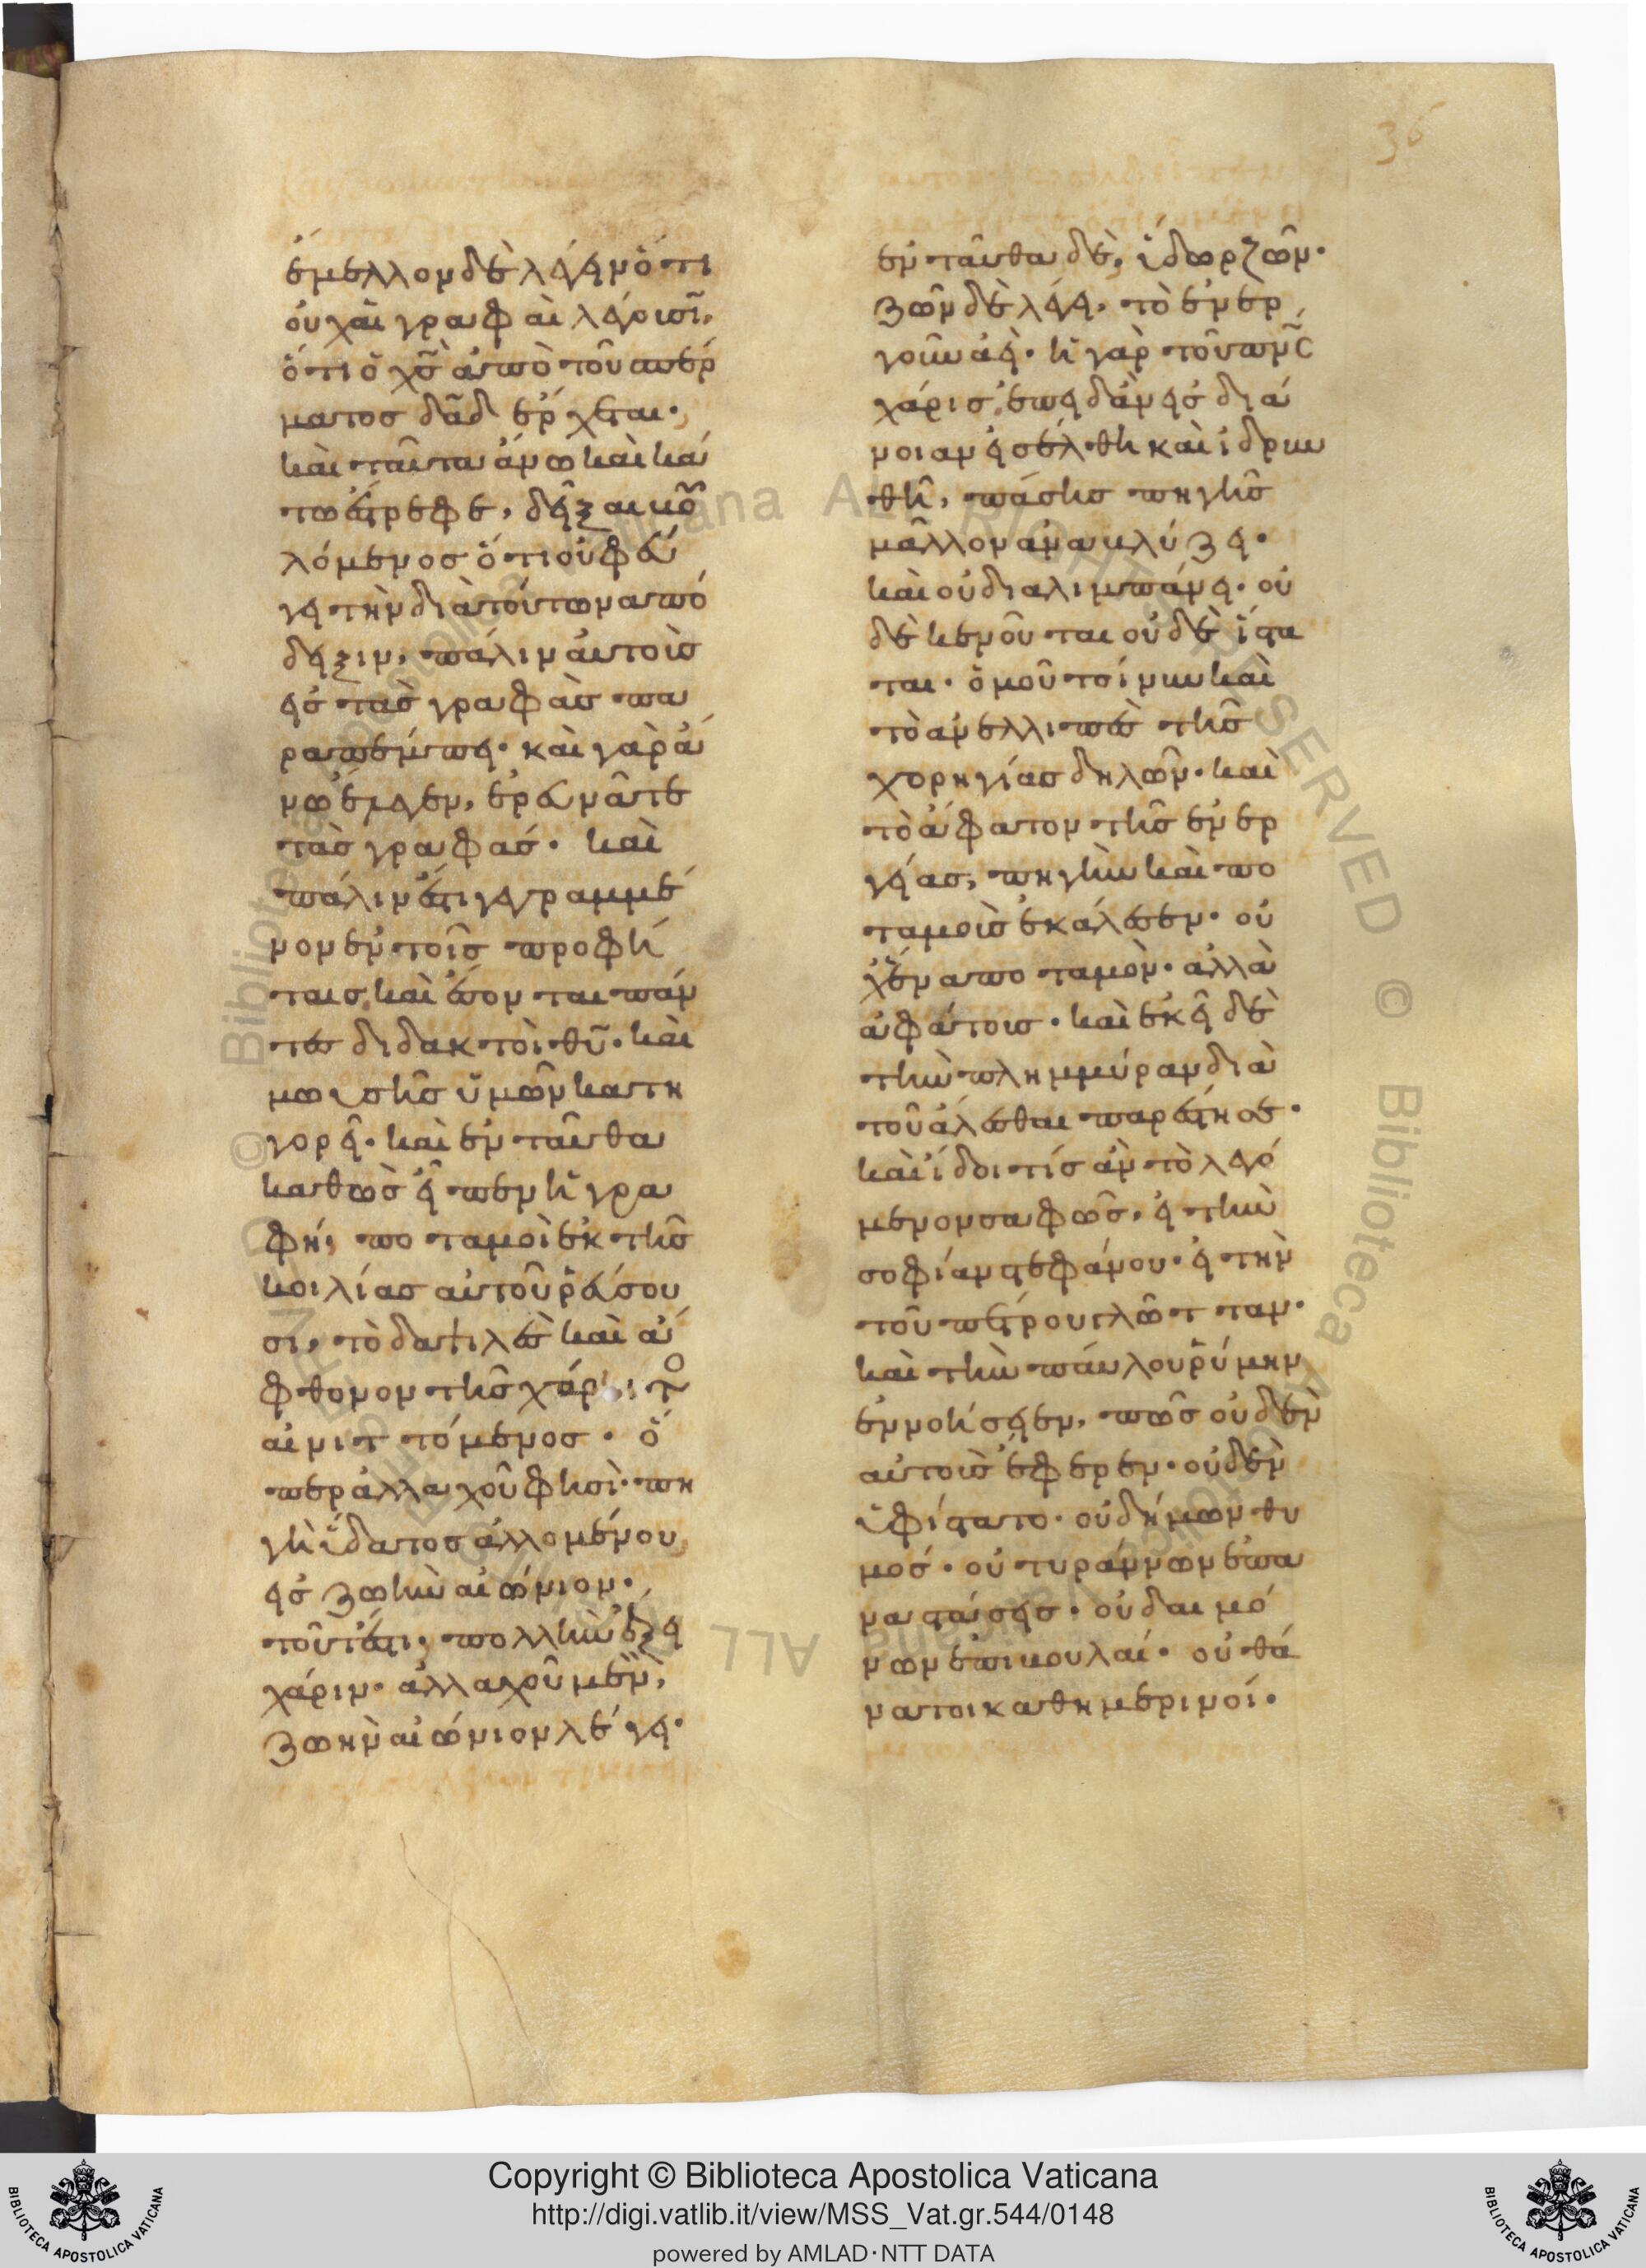 36
ἔμελλον δὲ λέγειν ὅτι
οὐχ αἱ γραφαὶ λέγουσῖ,
ὅτι ὁ χς ἀπὸ τοῦ σπέρ
ματος δαδ ἔρχεται·
καὶ ταῦτα ἄνω καὶ κά
τω ἔστρεφε, δεῖξαι βου
λόμενος ὅτι οὐ φεύ
γει τὴν διὰ τούτων ἀπό
δειξιν, πάλιν αὐτοὺς
εἰς τὰς γραφὰς πα
ραπέμπει· καὶ γὰρ ἄ
νω ἔλεγεν, ἐρευνᾶτε
τὰς γραφάς· καὶ
πάλιν ἔστι γεγραμμέ
νον ἐν τοῖς προφή
ταις, καὶ ἔσονται πάν
τες διδακτοὶ θυ· καὶ
μωυσῆς ὑμῶν κατη
γορεῖ· καὶ ἐνταῦθα
καθὼς εἶπεν ἡ γρα
φή, ποταμοὶ ἐκ τῆς
κοιλίας αὐτοῦ ῥεύσου
σι, τὸ δαψιλὲς καὶ ἄ
φθονον τῆς χάριτος
αἰνιττόμενος· ὅ
περ ἀλλαχοῦ φησὶ· πη
γὴ ὕδατος ἁλλομένου
εἰς ζωὴν αἰώνιον·
τουτέστι, πολλὴν ἕξει
χάριν· ἀλλαχοῦ μὲν,
ζωὴν αἰώνιον λέγει·
ἐνταῦθα δὲ, ὕδωρ ζῶν·
ζῶν δὲ λέγει, τὸ ἐνερ
γοῦν ἀεὶ· ἡ γὰρ τοῦ πνς
χάρις, ἐπειδὰν εἰς διά
νοιαν εἰσέλθη καὶ ἱδρυν
θῆ, πάσης πηγῆς
μᾶλλον ἀναβλύζει·
καὶ οὐ διαλιμπάνει· οὐ
δὲ κενοῦται οὐδὲ ἵστα
ται· ὁμοῦ τοίνυν καὶ
τὸ ἀνελλιπὲς τῆς
χορηγίας δηλῶν· καὶ
τὸ ἄφατον τῆς ἐνερ
γείας, πηγὴν καὶ πο
ταμοὺς ἐκάλεσεν· οὐ
χ ἕνα ποταμὸν· ἀλλὰ
ἀφάτους· καὶ ἐκεῖ δὲ
τὴν πλημμύραν διὰ
τοῦ ἅλεσθαι παρέστησε·
καὶ ἴδοι τίς ἂν τὸ λεγό
μενον σαφῶς, εἰ τὴν
σοφίαν στεφάνου· εἰ τὴν
τοῦ πέτρου γλῶτταν·
καὶ τὴν παύλου ῥύμην
ἐννοήσειεν, πῶς οὐδὲν
αὐτοὺς ἔφερεν· οὐδὲν
ὑφίστατο· οὐ δήμων θυ
μός· οὐ τυράννων ἐπα
ναστάσεις· οὐ δαιμό
νων ἐπιβουλαί· οὐ θά
νατοι καθημερινοί·
Copyright © Biblioteca Apostolica Vaticana
http://digi.vatlib.it/view/MSS_Vat.gr.544/0148
powered by AMLAD·NTT DATA